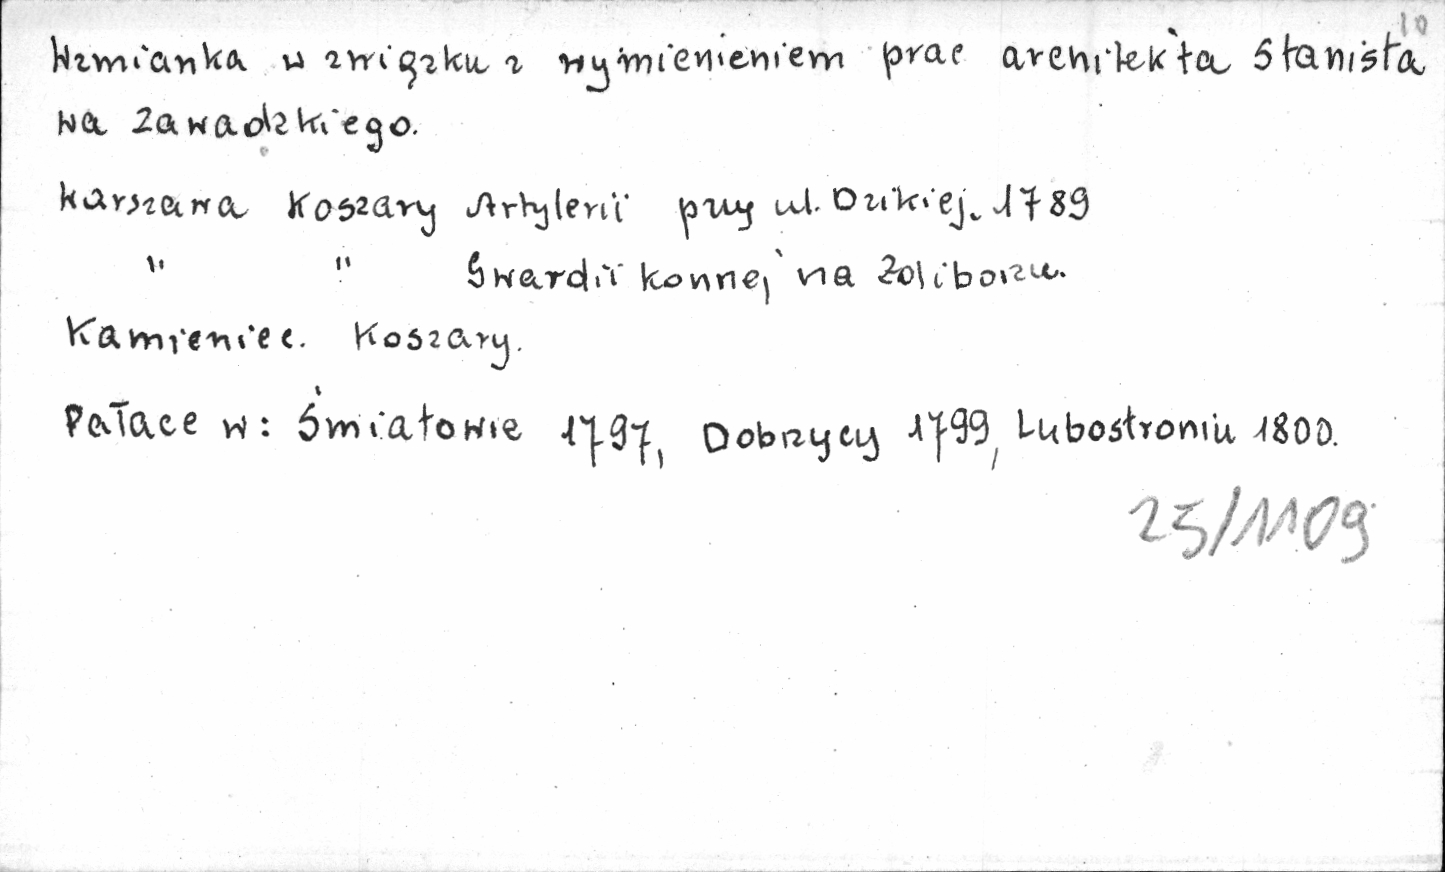 10
Wzmianka w związku z wymienieniem prac architekta Stanisła
wa Zawadzkiego.
Warszawa Koszary Artylerii przy ul. Dzikiej. 1789
" " Gwardii konnej na Żoliborzu.
Kamieniec. Koszary.
Pałace w: Śmiałowie 1797, Dobrzycy 1799, Lubostroniu 1800.
25/1109